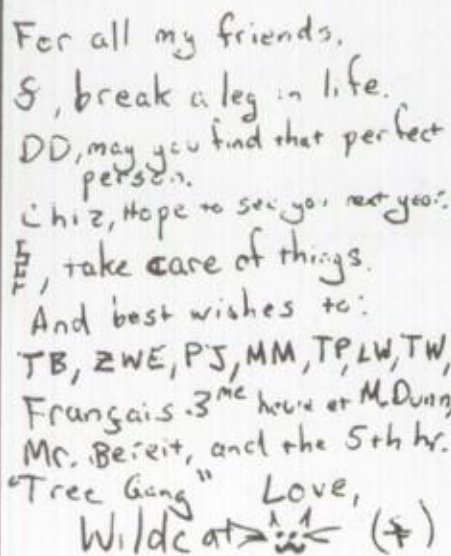 For all my friends.
, break a leg in life.
DD, may you find that perfect
person.
Chiz, Hope to see you next year.
, take care of things.
And best wishes to:
TB, ZWE, PJ, MM, TP, LW, TW,
Français 3me heure et M. Dunn,
Mr. Bereit, and the 5th hr.
"Tree Gang" Love,
Wildcat